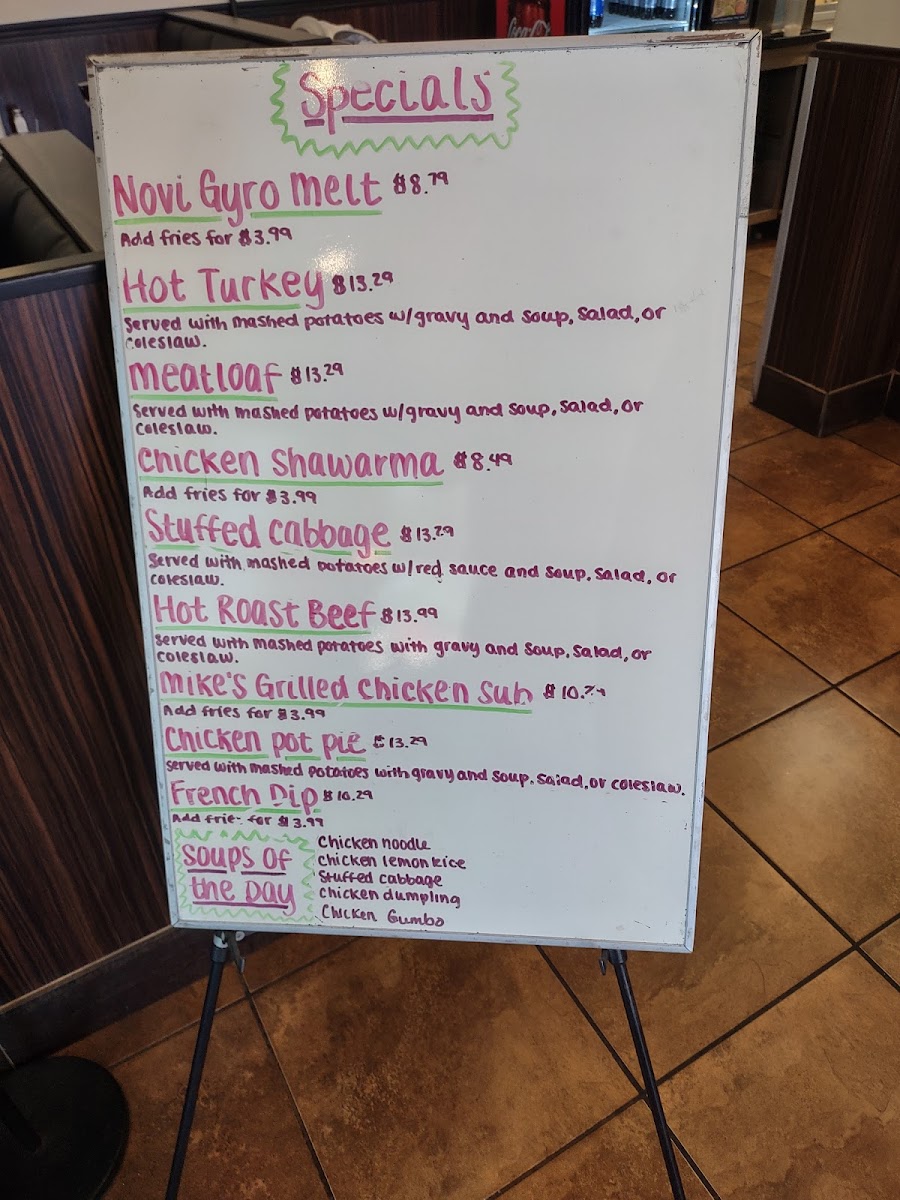 Coca-Cola
Specials
Novi Gyro Melt $8.79
Add fries for $3.99
Hot Turkey $13.29
Served with mashed potatoes w/gravy and soup, salad, or
coleslaw.
Meatloaf $13.29
Served with mashed potatoes w/gravy and soup, salad, or
coleslaw.
Chicken Shawarma $8.49
Add fries for $3.99
Stuffed Cabbage $13.29
Served with mashed potatoes w/red sauce and soup, salad, or
coleslaw.
Hot Roast Beef $13.99
Served with mashed potatoes with gravy and soup, salad, or
coleslaw.
Mike's Grilled Chicken Sub
Add fries for $3.99
Chicken pot pie $13.29
Served with mashed potatoes with gravy and soup, salad, or coleslaw.
French Dip $10.29
Add fries for $3.99
Soups of
the Day
Chicken noodle
Chicken lemon Rice
Stuffed cabbage
Chicken dumpling
Chicken Gumbo